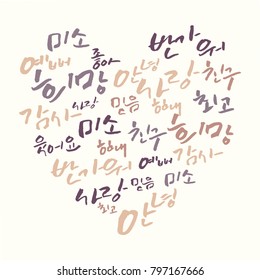 미소 좋아 반가워
예뻐 희망 안녕 사랑 친구
감사 사랑 믿음 해내 최고
웃어요 미소 친구 희망
반가워 해내 예뻐 감사
사랑 믿음 미소
최고 안녕
shutterstock.com · 797167666